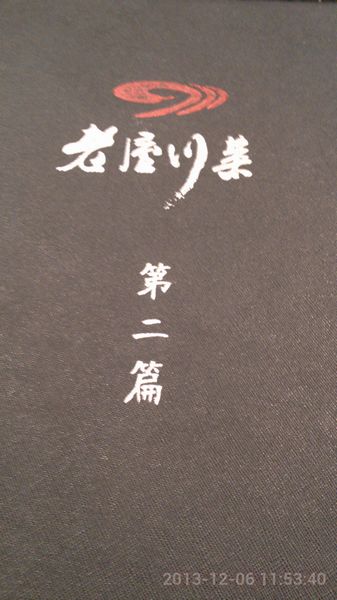 老屋川菜
第二篇
2013-12-06 11:53:40